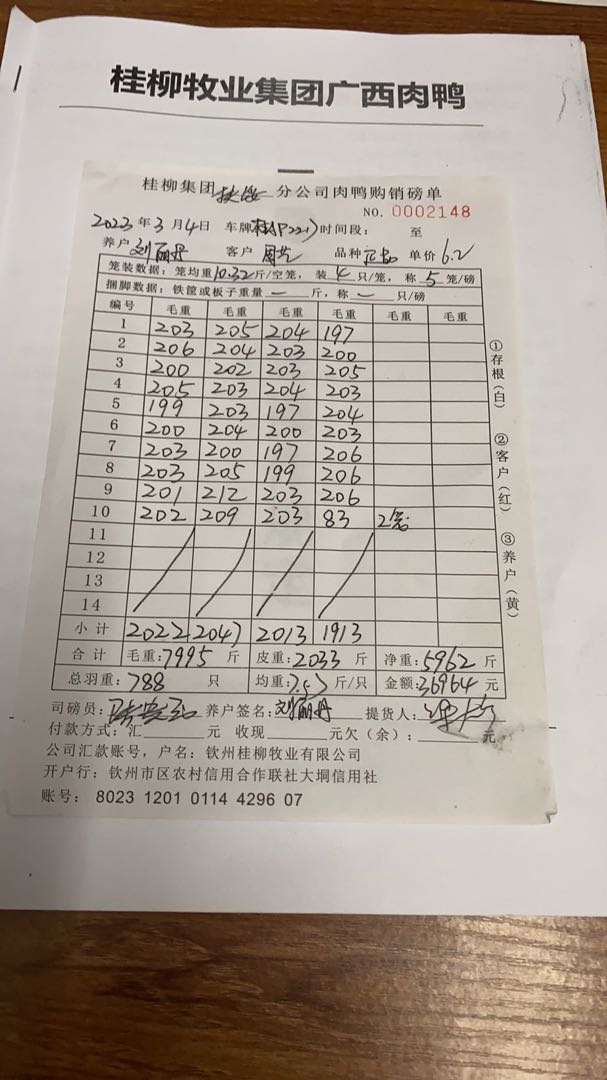 桂柳牧业集团广西肉鸭
桂柳集团 分公司肉鸭购销磅单
NO. 0002148
2023年3月4日 车牌 时间段： 至
养户 刘丽丹 客户 周艺 品种 正品 单价 6.2
笼装数据：笼均重10.32斤/空笼，装4只/笼，称5笼/磅
捆脚数据：铁筐或板子重量一斤，称一只/磅
编号 毛重 毛重 毛重 毛重 毛重 毛重
1 203 205 204 197
2 206 204 203 200
3 200 202 203 205
4 205 203 204 203
5 199 203 197 204
6 200 204 200 203
7 203 200 197 206
8 203 205 199 206
9 201 212 203 206
10 202 209 203 83 2笼
11
12
13
14
小计 2022 2047 2013 1913
合计 毛重：7995斤 皮重：2033斤 净重：5962斤
总羽重：788只 均重：7.57斤/只 金额：36964元
司磅员： 养户签名：刘丽丹 提货人：
付款方式：汇 元 收现 元欠（余）： 元
公司汇款账号，户名：钦州桂柳牧业有限公司
开户行：钦州市区农村信用合作联社大垌信用社
账号： 8023 1201 0114 4296 07
①存根（白）
②客户（红）
③养户（黄）